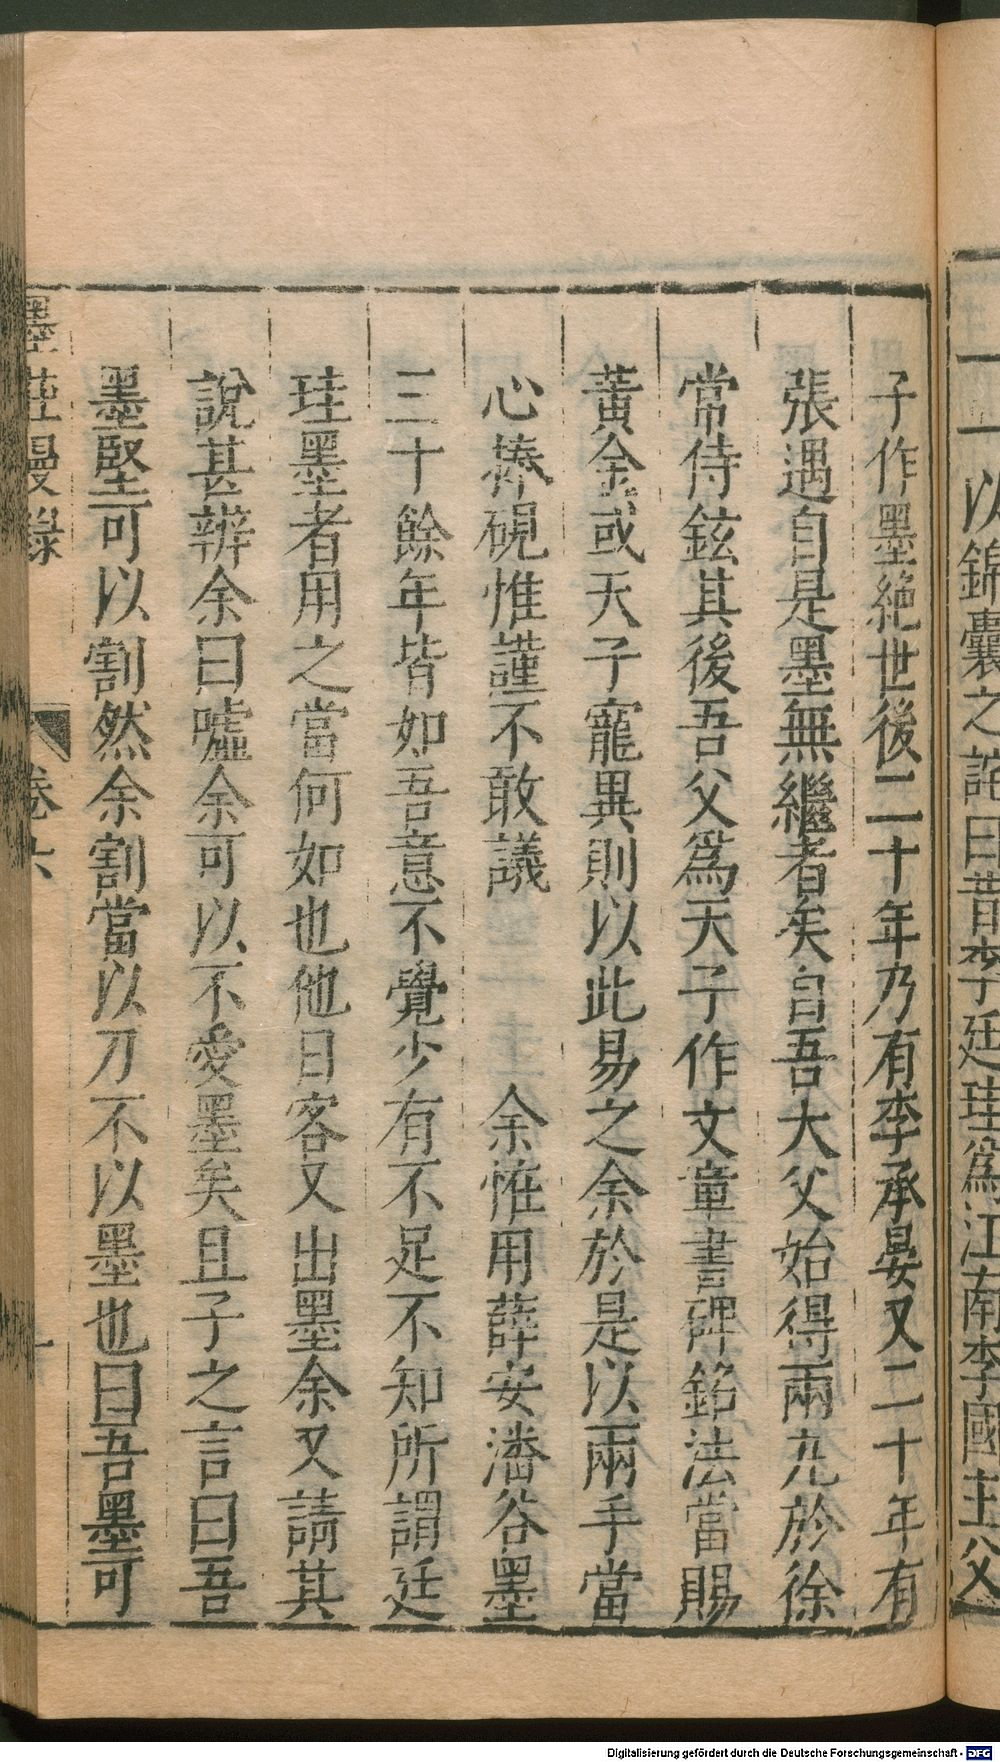 以錦囊之詫曰昔李廷珪爲江南李國主父
子作墨絶世後二十年乃有李承晏又二十年有
張遇自是墨無繼者矣自吾大父始得兩丸於徐
常侍鉉其後吾父爲天子作文章書碑銘法當賜
黃金或天子寵異則以此易之余於是以兩手當
心捧硯惟謹不敢議 余惟用薛安潘谷墨
三十餘年皆如吾意不覺少有不足不知所謂廷
珪墨者用之當何如也他日客又出墨余又請其
說甚辨余曰噓余可以不愛墨矣且子之言曰吾
墨堅可以割然余割當以刀不以墨也曰吾墨可
墨莊漫錄 卷六
Digitalisierung gefördert durch die Deutsche Forschungsgemeinschaft - DFG